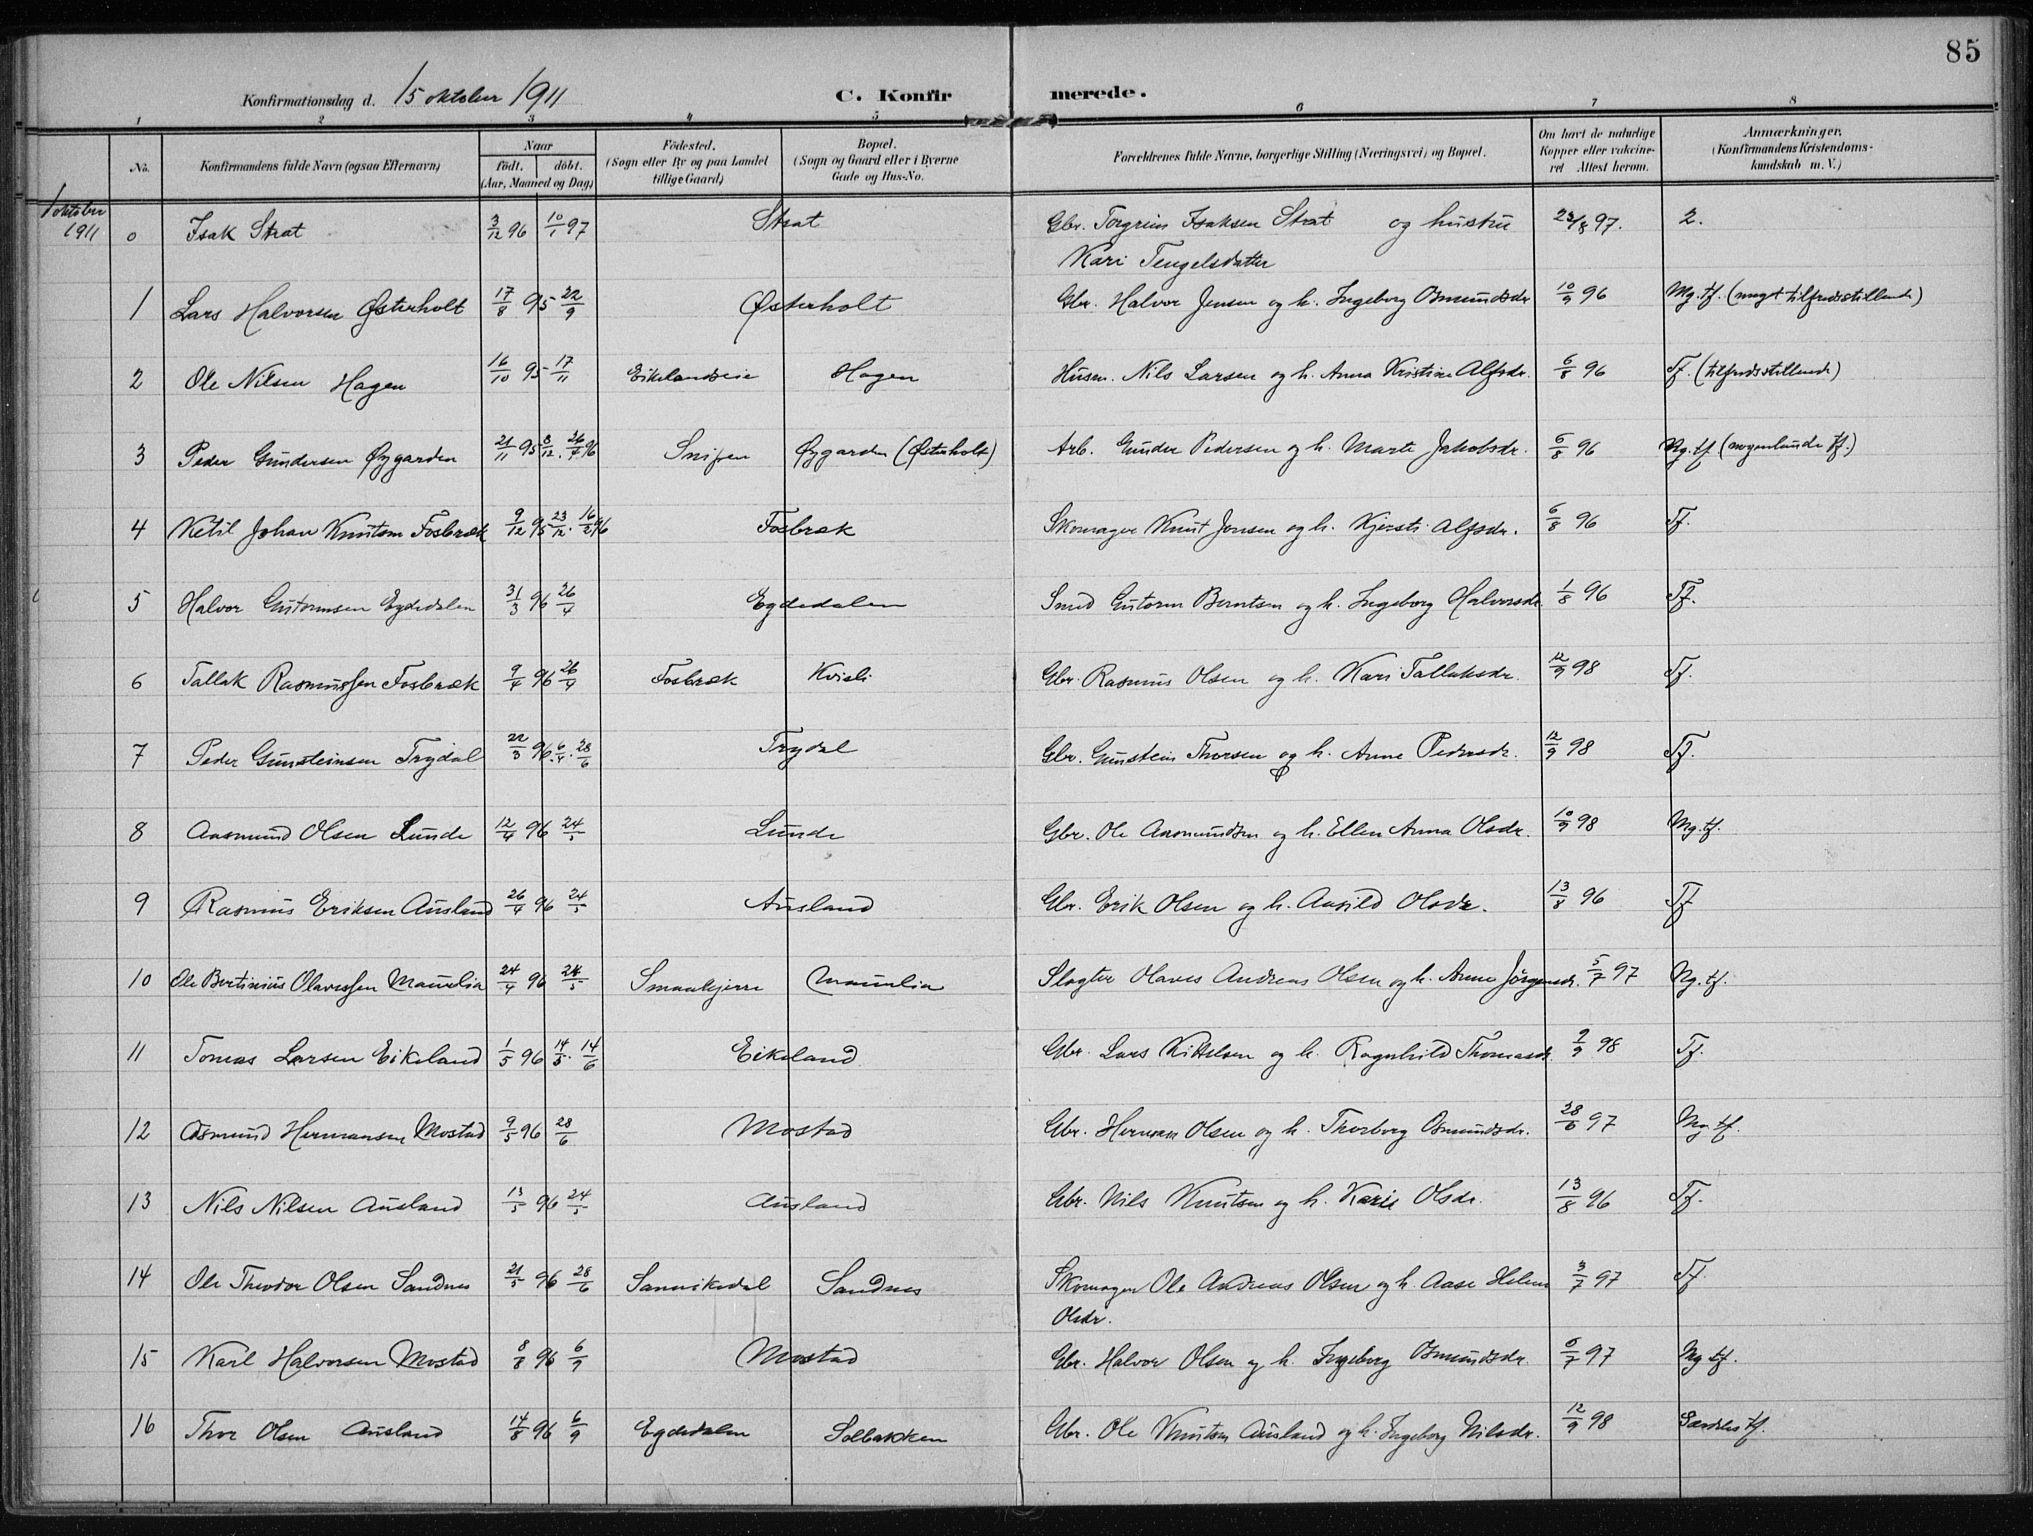 85
Konfirmationsdag d. 15 oktober 1911 C. Konfirmerede.
1 2 3 4 5 6 7 8
No. Konfirmandens fulde Navn (ogsaa Efternavn) Naar født. døbt. (Aar, Maaned og Dag) Fødested. (Sogn eller By og paa Landet tillige Gaard) Bopæl. (Sogn og Gaard eller i Byerne Gade og Hus-No. Forældrenes fulde Navne, borgerlige Stilling (Næringsvei) og Bopæl. Om havt de naturlige Kopper eller vaccineret Attest herom. Anmærkninger. (Konfirmandens Kristendomskundskab m. V.)
1 oktober 1911 0 Isak Strat 3/12 96 10/1 97 Strat Gbr. Torgrim Isaksen Strat og hustru 23/8 97. 2.
Kari Tengelsdatter
1 Lars Halvorsen Østerholt 17/8 95 22/9 Østerholt Gbr. Halvor Jensen og h. Ingeborg Osmundsdr 10/9 96 Mg. tf. (meget tilfredsstillende)
2 Ole Nilsen Hagen 16/10 95 17/11 Eikelandseie Hagen Husm. Nils Larsen og h. Anna Kristine Alfsdr. 6/8 96 Tf. (tilfredsstillende)
3 Peder Gundersen Øygarden 21/11 95 8/12. 26/7 96 Snipen Øygarden (Østerholt) Arb. Gunder Pedersen og h. Marte Jakobsdr. 6/8 96 Ng. tf (nogenlunde tf.)
4 Ketil Johan Knutsen Fosbræk 9/12 95 23/12. 16/2 96 Fosbræk Skomager Knut Jensen og h. Kjersti Alfsdr. 6/8 96 Tf.
5 Halvor Guttormsen Egdedalen 31/3 96 26/4 Egdedalen Smed Guttorm Berntsen og h. Ingeborg Halvorsdr. 1/8 96 Tf.
6 Tallak Rasmussen Fosbræk 9/4 96 26/4 Fosbræk Kvisli Gbr. Rasmus Olsen og h. Kari Tallaksdr. 12/9 98 Tf.
7 Peder Gunsteinsen Trydal 22/3 96 6/4. 28/6 Trydal Gbr. Gunstein Thorsen og h. Anne Pedersdr. 12/9 98 Tf.
8 Aasmund Olsen Lunde 12/4 96 24/5 Lunde Gbr. Ole Aasmundsen og h. Ellen Anna Olsdr. 10/9 98 Mg. tf.
9 Rasmus Eriksen Ausland 26/4 96 24/5 Ausland Gbr. Erik Olsen og h. Aasild Olsdr. 13/8 96 Tf
10 Ole Bertinius Olavessen Maurelia 24/4 96 24/5 Smaakjerr Maurelia Slagter Olaves Andreas Olsen og h. Anne Jörgensdr. 5/7 97 Ng. tf.
11 Tomas Larsen Eikeland 1/5 96 14/5. 14/6 Eikeland Gbr. Lars Kittelsen og h. Ragnhild Thomasdr. 2/9 98 Tf.
12 Osmund Hermansen Mostad 9/5 96 28/6 Mostad Gbr. Herman Olsen og h. Thorborg Osmundsdr. 28/6 97 Mg. tf.
13 Nils Nilsen Ausland 13/5 96 24/5 Ausland Gbr. Nils Knutsen og h. Karie Olsdr. 13/8 96 Tf.
14 Ole Theodor Olsen Sandnes 21/5 96 28/6 Sannikedal Sandnes Skomager Ole Andreas Olsen og h. Aase Helene 3/7 97 Tf
Olsdr.
15 Karl Halvorsen Mostad 8/8 96 6/9 Mostad Gbr. Halvor Olsen og h. Ingeborg Osmundsdr. 6/7 97 Ng tf.
16 Thor Olsen Ausland 14/8 96 6/9 Egdedalen Solbakken Gbr. Ole Knutsen Ausland og h. Ingeborg Nilsdr. 12/9 98 Særdeles tf.